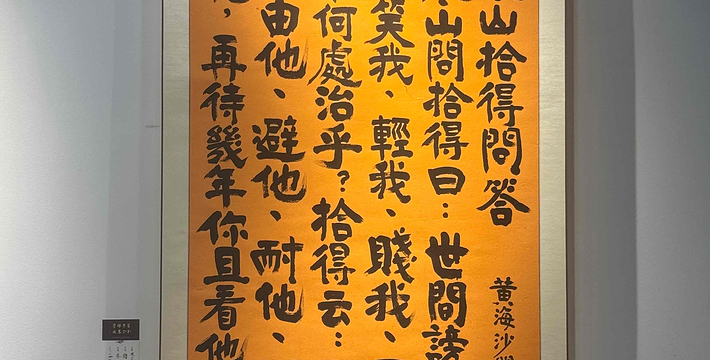 山拾得問答
黄海沙
山問拾得曰：世間謗
笑我、輕我、賤我、
何處治乎？拾得云：
由他、避他、耐他、
，再待幾年你且看他